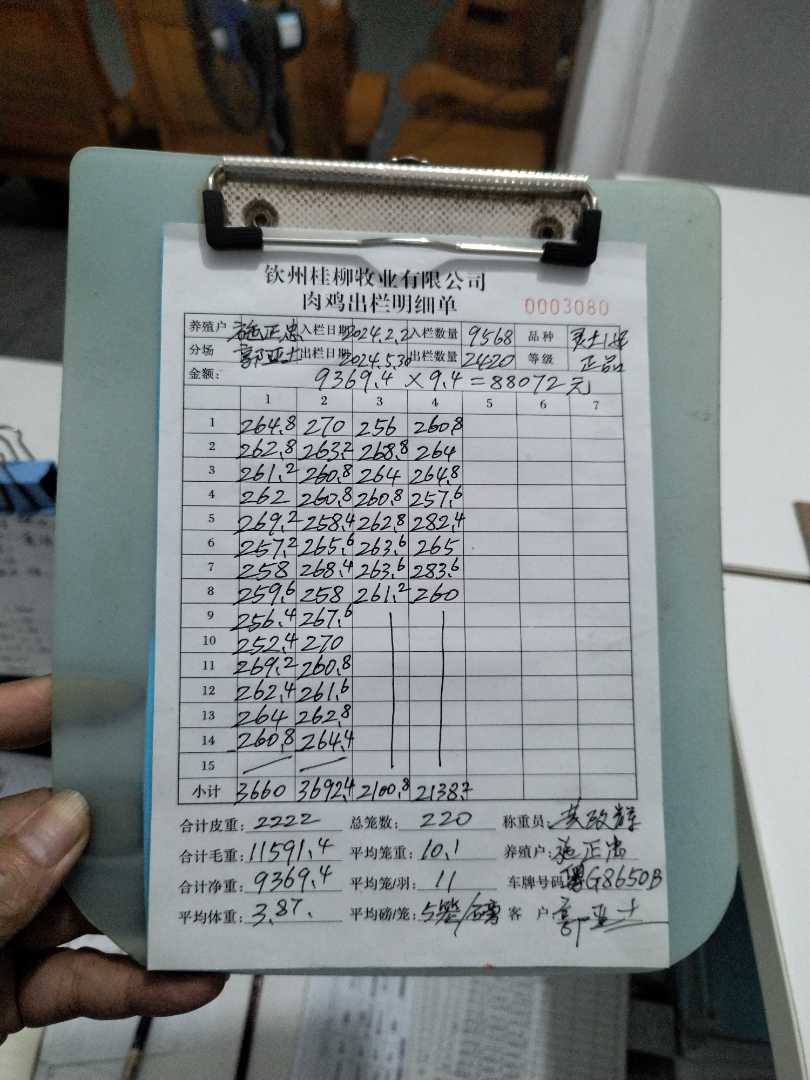 钦州桂柳牧业有限公司
肉鸡出栏明细单
0003080
养殖户 施正忠 入栏日期 2024.2.2 入栏数量 9568 品种
分场 郭亚士 出栏日期 2024.5.30 出栏数量 2420 等级 正品
金额: 9369.4 × 9.4 = 88072元
1 2 3 4 5 6 7
1 264.8 270 256 260.8
2 262.8 263.2 268.8 264
3 261.2 260.8 264 264.8
4 262 260.8 260.8 257.6
5 269.2 258.4 262.8 282.4
6 257.2 265.6 263.6 265
7 258 268.4 263.6 283.6
8 259.6 258 261.2 260
9 256.4 267.6
10 252.4 270
11 269.2 260.8
12 262.4 261.6
13 264 262.8
14 260.8 264.4
15
小计 3660 3692.4 2100.8 2138.2
合计皮重: 2222 总笼数: 220 称重员:
合计毛重: 11591.4 平均笼重: 10.1 养殖户: 施正忠
合计净重: 9369.4 平均笼/羽: 11 车牌号码: G8650B
平均体重: 3.87. 平均磅/笼: 5笼/磅 客 户 郭亚士